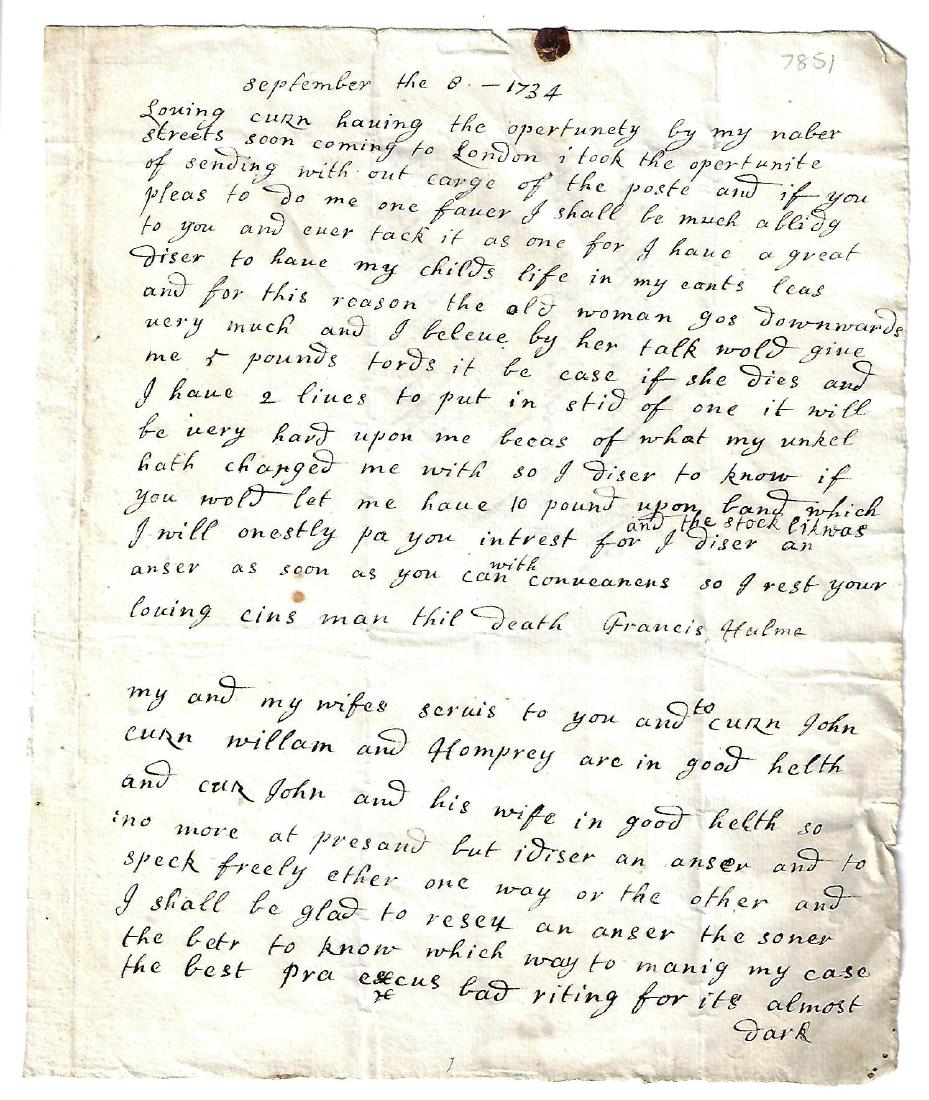 7851
september the 8 - 1734
Loving cuzn hauing the opertunety by my naber
streets soon coming to London i took the opertunite
of sending with out carge of the poste and if you
pleas to do me one fauer I shall be much ablidg
to you and euer tack it as one for I haue a great
diser to haue my childs life in my eants leas
and for this reason the old woman gos downwards
uery much and I beleue by her talk wold giue
me 5 pounds tords it be case if she dies and
I haue 2 liues to put in stid of one it will
be uery hard upon me becas of what my unkel
hath charged me with so I diser to know if
you wold let me haue 10 pound upon band which
and the stock likwas
I will onestly pa you intrest for I diser an
anser as soon as you can with conueanens so I rest your
louing cins man thil death Francis Hulme
my and my wifes seruis to you and to cuzn John
cuzn willam and Homprey are in good helth
and cuz John and his wife in good helth so
no more at presand but i diser an anser and to
speck freely ether one way or the other and
I shall be glad to resey an anser the soner
the betr to know which way to manig my case
the best Pra excus bad riting for its almost
dark